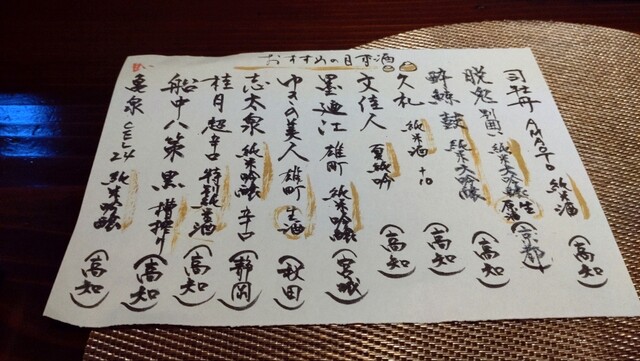 おすすめの日本酒
司牡丹 AMAOTO 純米酒 (高知)
脱兎 別囲い 純米大吟醸 生原酒 (京都)
酔鯨 鼓 純米大吟醸 (高知)
久礼 純米酒 +10 (高知)
文佳人 夏純吟 (高知)
墨廼江 雄町 純米吟醸 (宮城)
ゆきの美人 雄町 生酒 (秋田)
志太泉 純米吟醸 辛口 (静岡)
桂月 超辛口 特別純米酒 (高知)
船中八策 黒 槽搾り (高知)
亀泉 CEL24 純米吟醸 (高知)